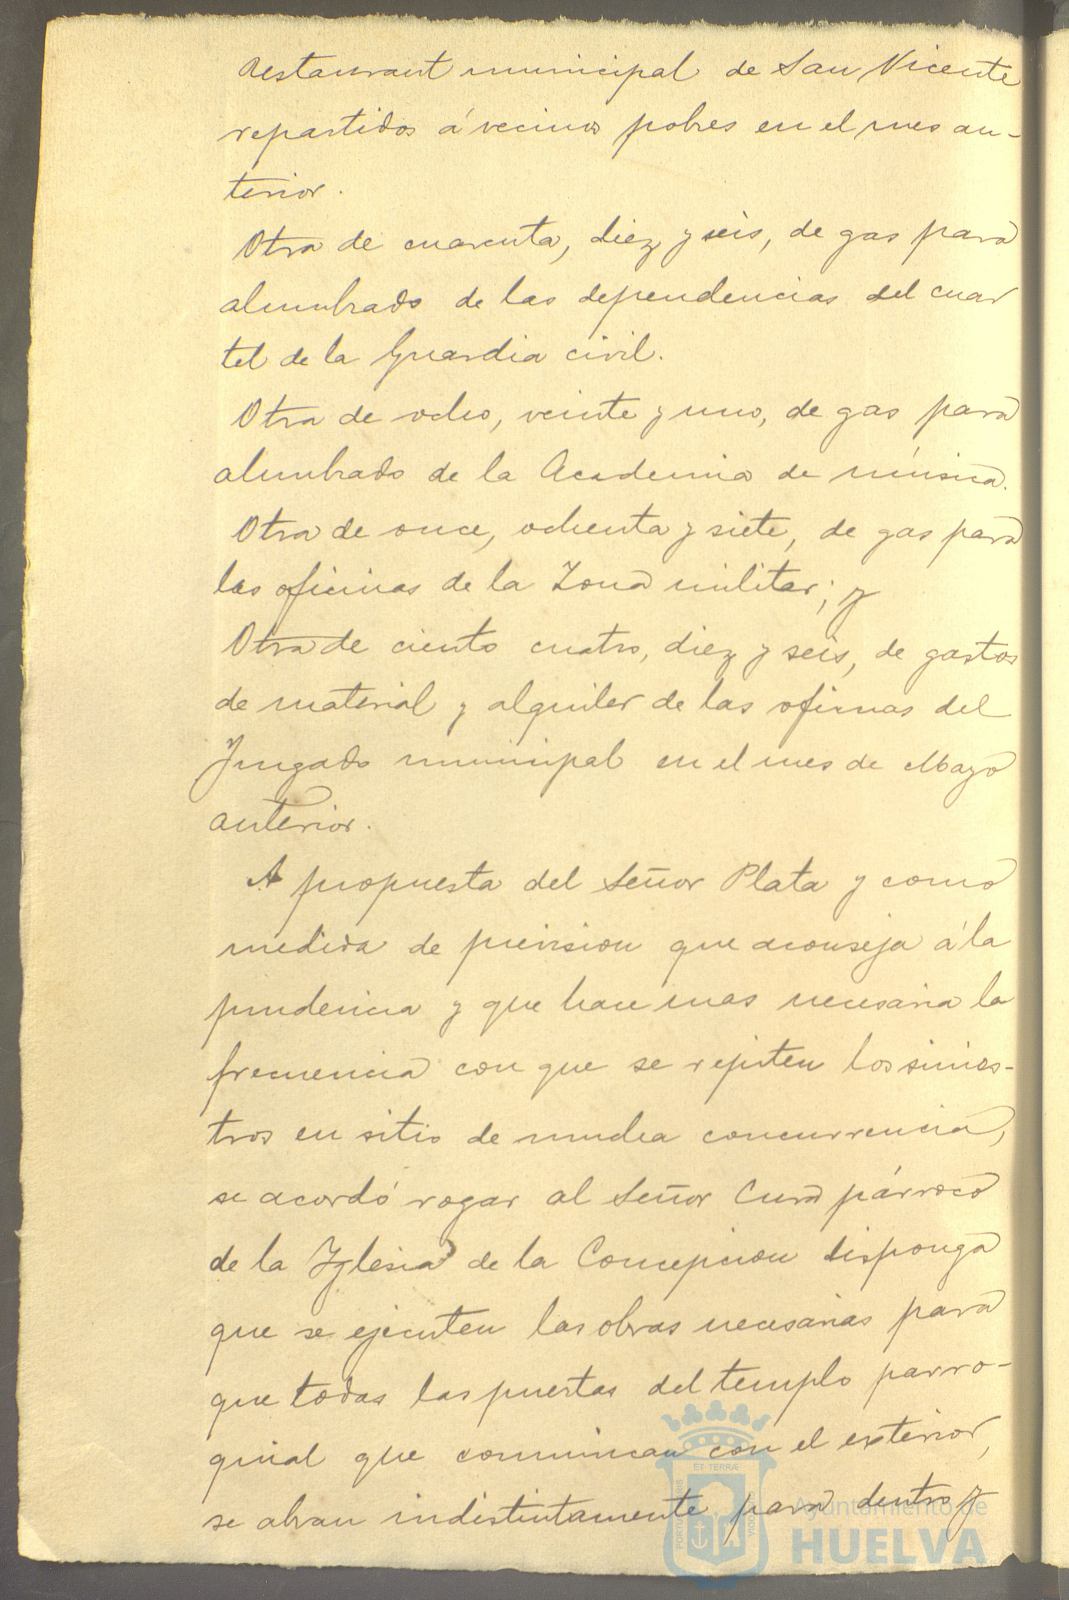 Restaurant municipal de San Vicente
repartidos á vecinos pobres en el mes an-
terior.
Otra de cuarenta, diez y seis, de gas para
alumbrado de las dependencias del cuar
tel de la Guardia civil.
Otra de ocho, veinte y uno, de gas para
alumbrado de la Academia de música.
Otra de once, ochenta y siete, de gas para
las oficinas de la Zona militar; y
Otra de ciento cuatro, diez y seis, de gastos
de material y alquiler de las oficinas del
Juzgado municipal en el mes de Mayo
anterior.
A propuesta del Señor Plata y como
medida de prevision que aconseja á la
prudencia y que hace mas necesaria la
frecuencia con que se repiten los sinies-
tros en sitio de mucha concurrencia,
se acordó rogar al Señor Cura párroco
de la Yglesia de la Concepcion disponga
que se ejecuten las obras necesarias para
que todas las puertas del templo parro-
quial que comunican con el exterior,
se abran indistintamente para dentro y
ET TERRÆ
Ayuntamiento de
HUELVA